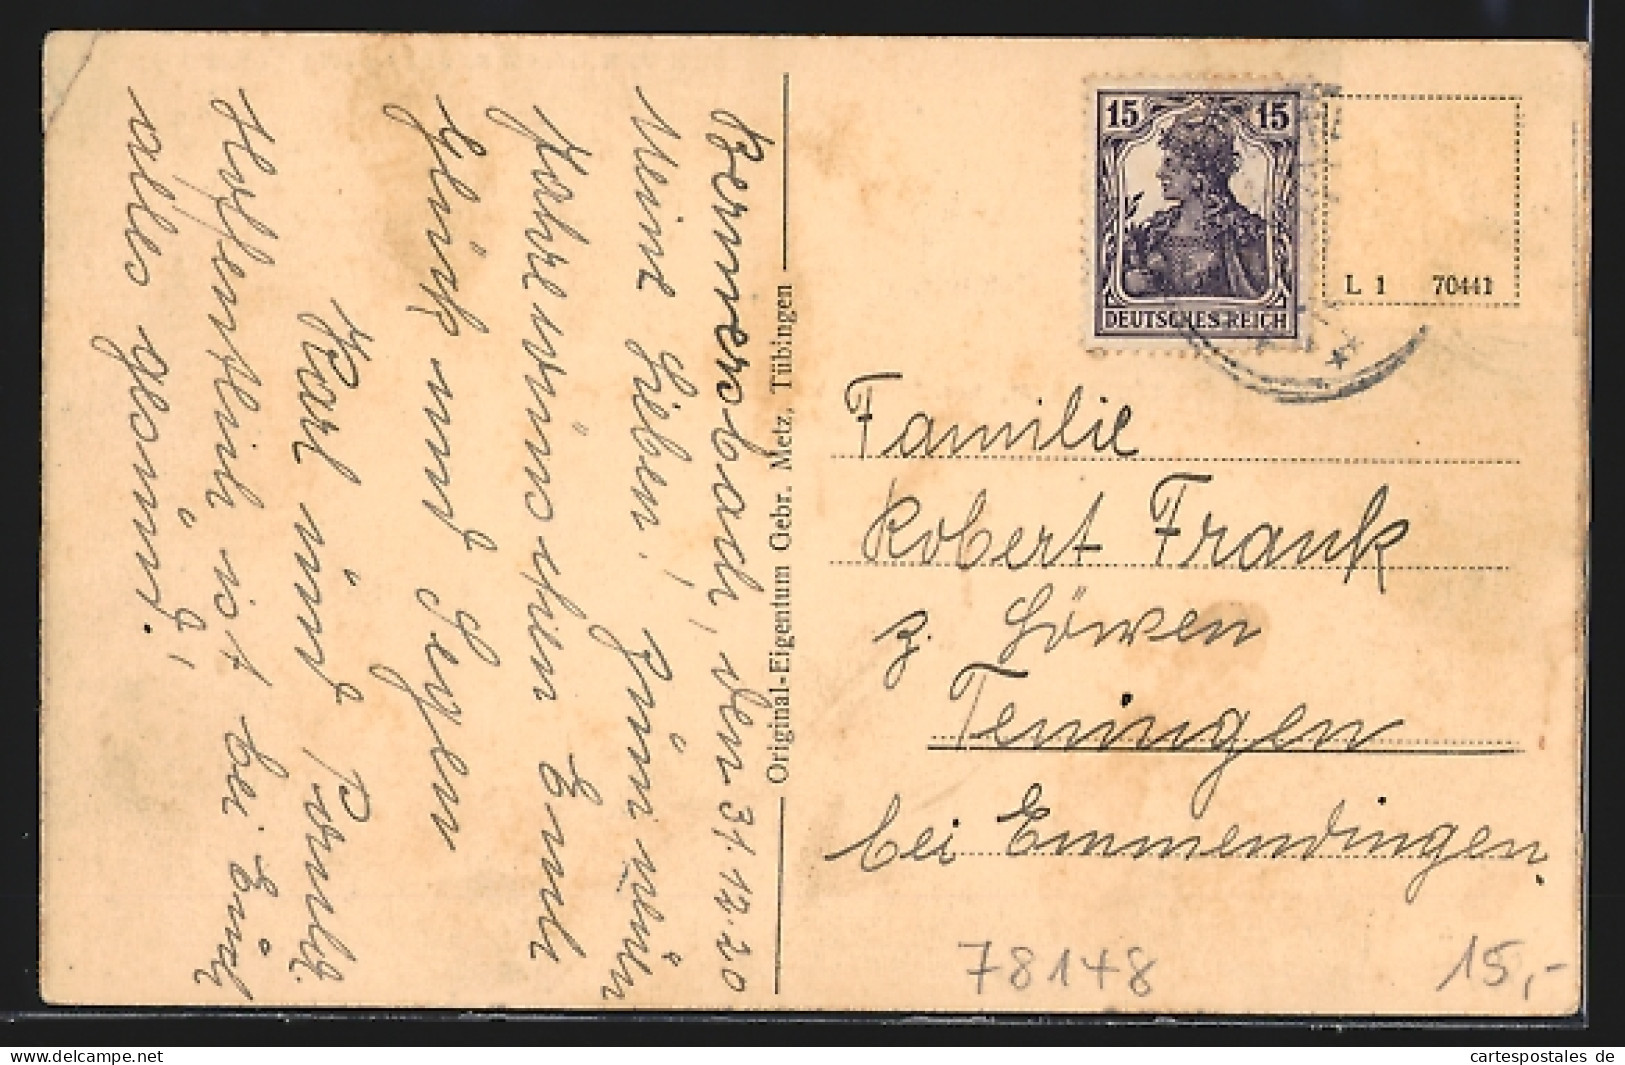 Bermersbach, den 31.12.20
Meine Lieben!
Zum neuen
Jahre wünschen Euch
Glück und Segen
Karl und
Hoffentlich ist bei Euch
alles gesund!
Original-Eigentum Gebr. Metz, Tübingen
15 15
DEUTSCHES REICH
L 1 70441
Familie
Robert Frank
z. Löwen
Teningen
bei Emmendingen.
78148
15,-
www.cpaphil.com
cartespostales de